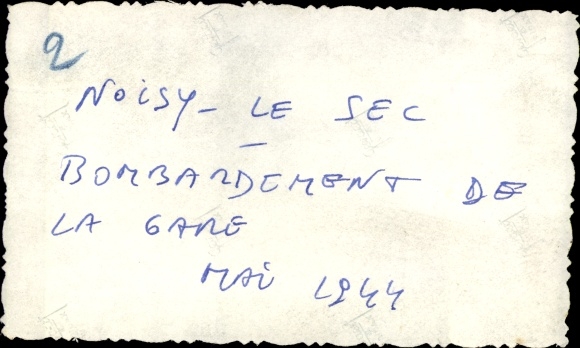 2
NOiSY-LE SEC
-
BOMBARDEMENT DE
LA GARE
MAi 1944